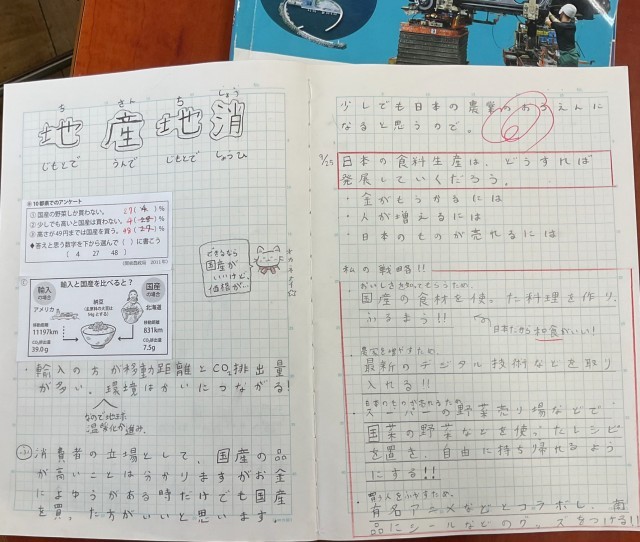 ち さん ち しょう
地産地消
じもとで うんで じもとで しょうひ
10都県でのアンケート
①国産の野菜しか買わない。 27( )%
②少しでも高いと国産は買わない。 4( )%
③高さが49円までは国産を買う。 48(27)%
◆答えと思う数字を下から選んで( )に書こう
( 4 27 48 )
輸入と国産を比べると?
輸入の場合
国産の場合
アメリカ
納豆
北海道
移動距離
11197km
CO₂排出量
39.0g
移動距離
831km
CO₂排出量
7.5g
できるなら
国産が
いいけど、
値段が…
・輸入の方が移動距離とCO₂排出量
が多い。環境はかいにつながる!
なので地球
温暖化が進み、
消費者の立場として、国産の品
が高いことは分かりますがお金
によゆうがある時だけでも国産
を買った方がいいと思います。
少しでも日本の農業のおうえんに
なると思うので。
9/25
日本の食料生産は、どうすれば
発展していくだろう。
・金がもうかるには
・人が増えるには
・日本のものが売れるには
私の戦略!!
・おいしさを知ってもらうため、
国産の食材を使った料理を作り、
ふるまう!!
日本だから和食がいい!
・農家を増やすため、
最新のデジタル技術などを取り
入れる!!
・日本のものが売れるため
スーパーの野菜売り場などで
国産の野菜などを使ったレシピ
を置き、自由に持ち帰れるよう
にする!!
・買う人をふやすため。
有名アニメなどとコラボし、商
品にシールなどのグッズをつける!!